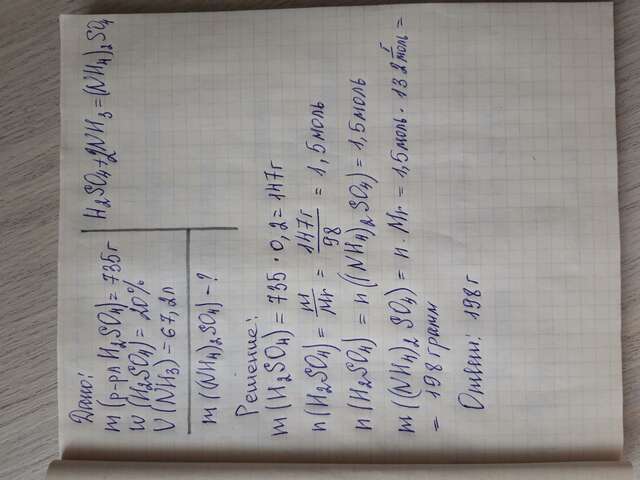 Дано:
m(р-ра H2SO4) = 735 г
w(H2SO4) = 20%
V(NH3) = 67,2л
m((NH4)2SO4) - ?
H2SO4 + 2NH3 = (NH4)2SO4
Решение:
m(H2SO4) = 735 · 0,2 = 147г
n(H2SO4) = m/Mr = 147г/98 = 1,5моль
n(H2SO4) = n((NH4)2SO4) = 1,5моль
m((NH4)2SO4) = n · Mr = 1,5моль · 132 г/моль =
= 198 грамм
Ответ: 198 г